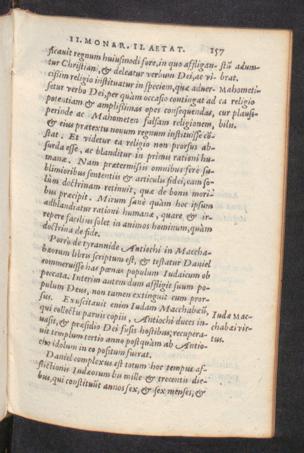 II. MONAR. II. AETAT. 157
ficauit regnum huiusmodi fore, in quo affligan-
tur Christiani, & deleatur verbum Dei, ac vi-
cissim religio instituatur in speciem, quæ aduer-
setur verbo Dei, per quam occasio contingat ad
potentiam & amplissimas opes consequendas,
perinde ac Mahometen falsam religionem,
& eius prætextu nouum regnum instituisse cō-
stat. Et videtur ea religio non prorsus ab-
surda esse, ac blanditur in primis rationi hu-
manæ. Nam prætermissis omnibus fere su-
blimioribus sententiis & articulis fidei, eam so-
lùm doctrinam retinuit, quæ de bonis mori-
bus præcipit. Mirum sanè quàm hoc ipsum
adblandiatur rationi humanæ, quare, & ir-
repere facilius solet in animos hominum, quàm
doctrina de fide.
Porrò de tyrannide Antiochi in Macha-
bæorum libris scriptum est, & testatur Daniel
commeruisse has pœnas populum Iudaicum ob
peccata. Interim autem dum affligit suum po-
pulum Deus, non tamen extinguit eum pror-
sus. Exuscitauit enim Iudam Machabæū,
qui collectis paruis copiis, Antiochi duces in-
uasit, & præsidio Dei fusis hostibus, recupera-
uit templum tertio anno postquàm ab Antio-
cho idolum in eo positum fuerat.
Daniel complexus est totum hoc tempus af-
flictionis Iudæorum bis mille & trecentis die-
bus, qui constituūt annos sex, & sex menses, &
stū adum-
brat.
Mahometi-
ca religio
cur plausi-
bilis.
Iudæ Mac-
chabæi vir-
tus.